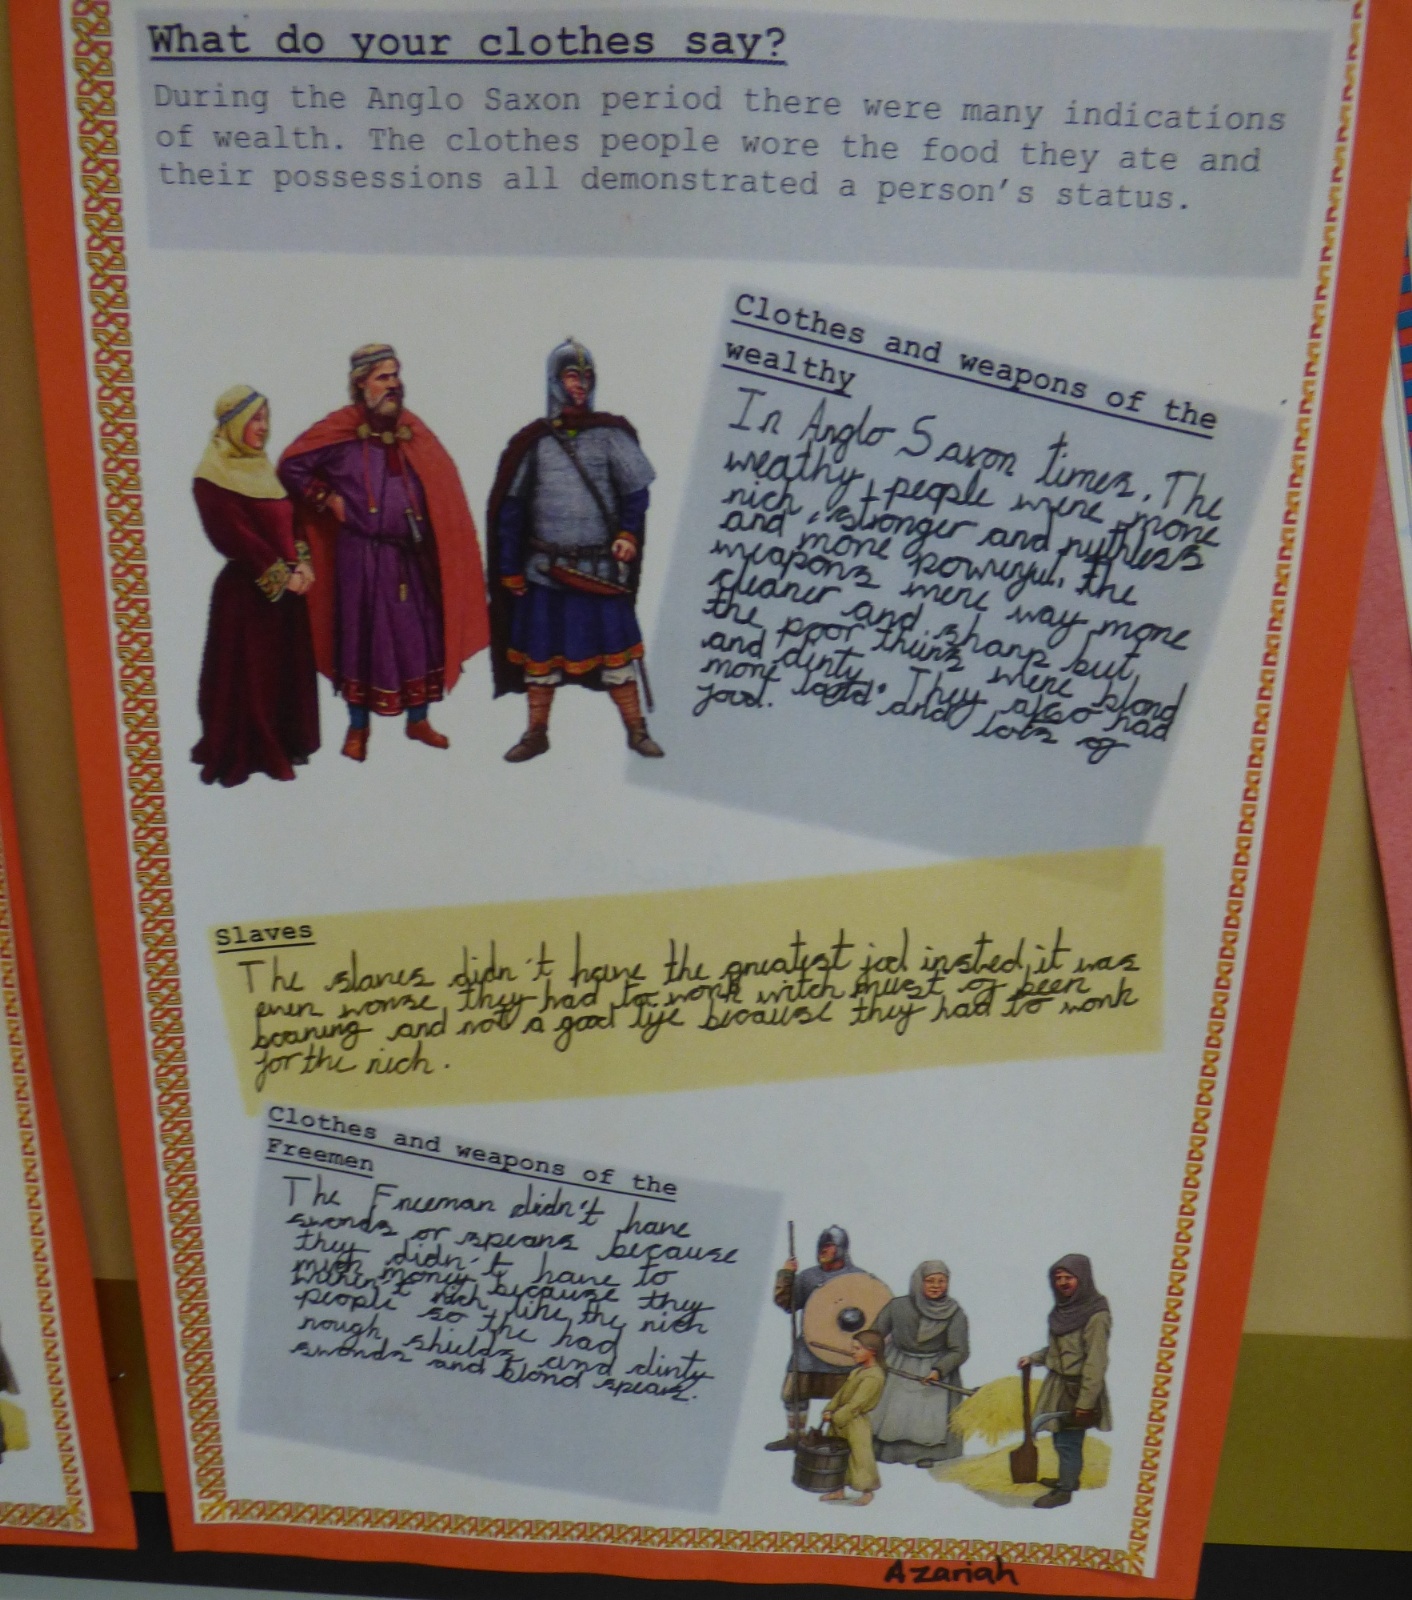 What do your clothes say?
During the Anglo Saxon period there were many indications
of wealth. The clothes people wore the food they ate and
their possessions all demonstrated a person's status.
Clothes and weapons of the
wealthy
In Anglo Saxon times. The
weathy people were more
rich, stronger and ruthless
and more powerful. the
weapons were way more
cleaner and sharp but
the poor thins were blond
and dirty. They also had
more and lots of
food.
Slaves
The slaves didn't have the greatest jod insted it was
even worse they had to work witch must of been
boaring and not a good life because they had to work
for the rich.
Clothes and weapons of the
Freemen
The Freeman didn't have
swords or spears because
they didn't have to
much money because they
rich like the rich
people so the had
rough shields and dirty
swords and blond spears.
Azariah